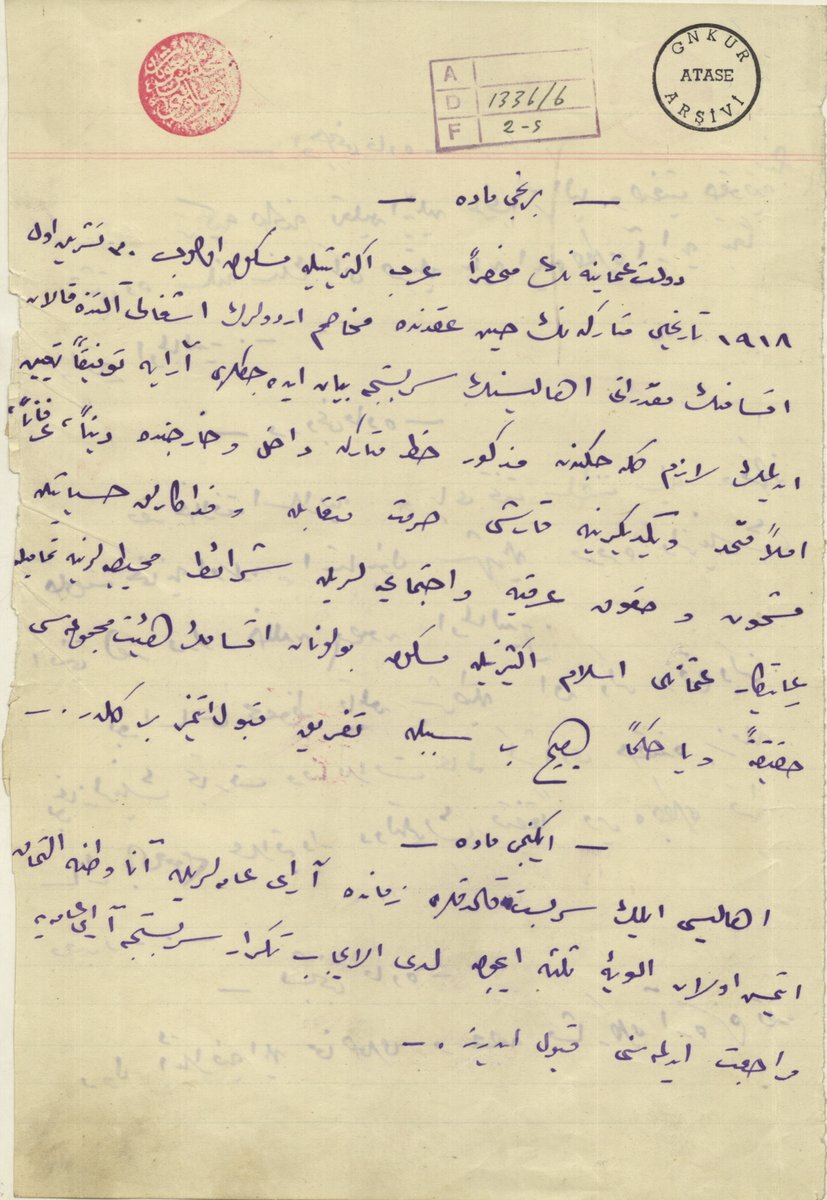 GNKUR
ATASE
ARŞİVİ
A
D 1336/6
F 2-5
— برنجی ماده —
دولت عثمانیه نك منحصراً عرب اكثریتیله مسكون اولوب ٣٠ تشرین اول
١٩١٨ تاریخلی متاركه نك حین عقدنده مخاصم اردولرك اشغالی آلتنده قالان
اقسامنك مقدراتی اهالیسنك سربستجه بیان ایده جكلری آرایه توفیقاً تعیین
ایدلمك لازم كله جكندن مذكور خط متاركه داخل وخارجنده دیناً، عرفاناً،
املاً متحد ویكدیكرینه قارشی حرمت متقابله وفداكارلق حسیاتیله
مشحون و حقوق عرقیه واجتماعیه لریله شرائط محیطیه لرینه تمامیله
رعایتكار عثمانلی اسلام اكثریتیله مسكون بولونان اقسامك هیئت مجموعه سی
حقیقةً ویا حكماً هیچ بر سببله تفریق قبول ایتمز بر كلدر . —
— ایكنجی ماده —
اهالیسی ایلك سربست قالدقلری زمانده آرای عامه لریله آنا وطنه التحاق
ایتمیش اولان الویهٔ ثلثه ایچون لدی الایجاب تكرار سربستجه آرای عامه یه
مراجعت ایدلمه سنی قبول ایدرز . —